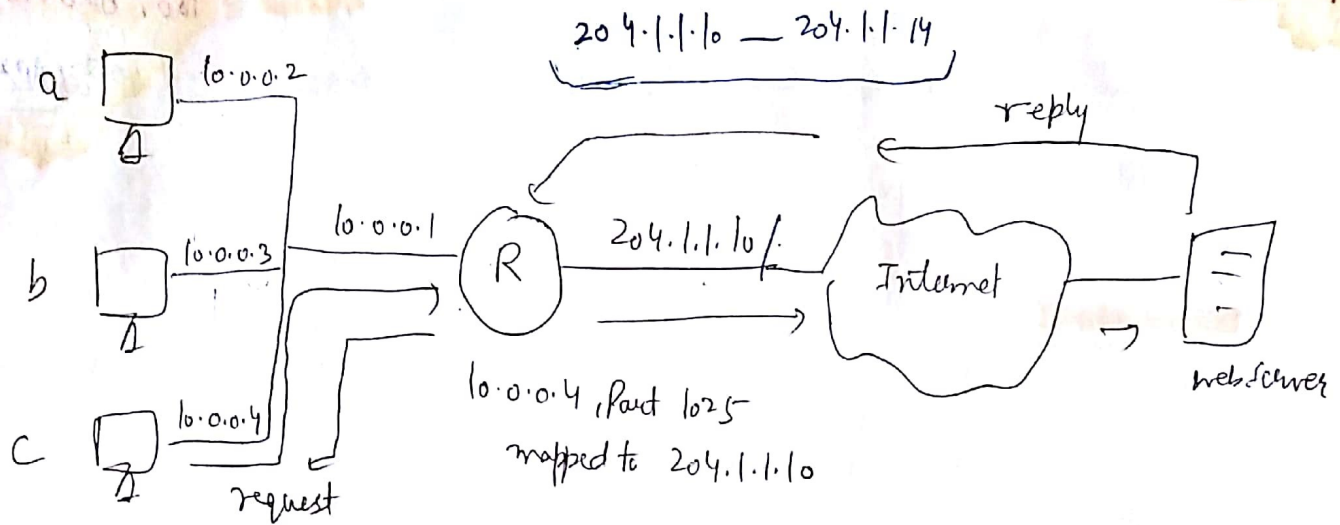 204.1.1.10 — 204.1.1.14
reply
a
10.0.0.2
b
10.0.0.3
10.0.0.1
R
204.1.1.10
Internet
webserver
c
10.0.0.4
request
10.0.0.4, Port 1025
mapped to 204.1.1.10